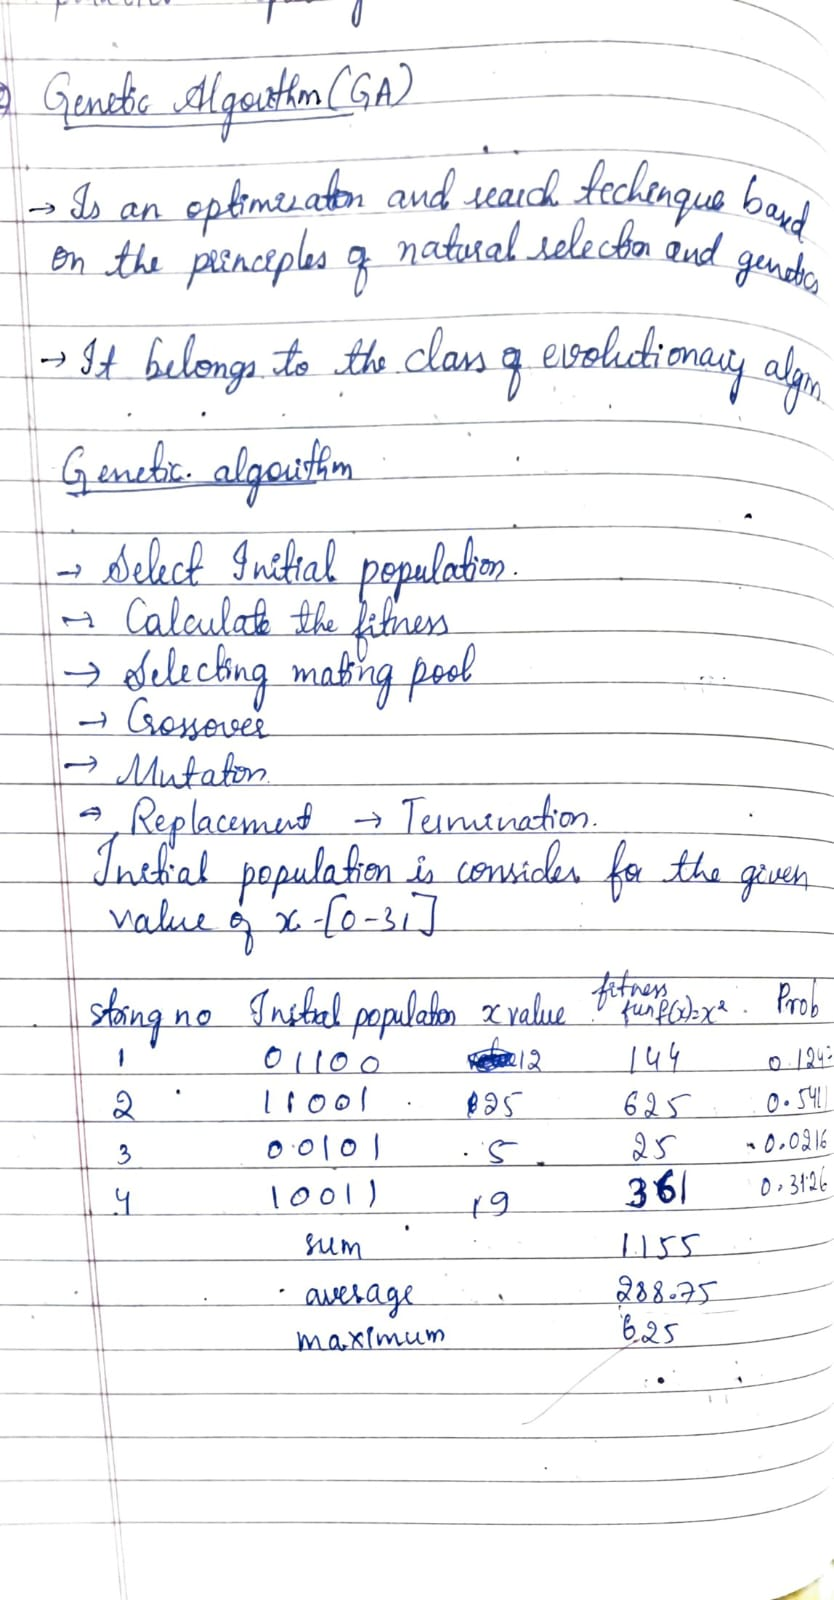 Genetic Algorithm (GA)
→ Is an optimization and search techinque based
on the principles of natural selection and genetics
→ It belongs to the class of evolutionary algm
Genetic algorithm
→ Select Initial population.
→ Calculate the fitness
→ Selecting mating pool
→ Crossover
→ Mutation
→ Replacement → Termination.
Initial population is consider for the given
value of x - [0-31]
string no Initial population x value fitness fun f(x)=x² Prob
1 01100 12 144 0.124
2 11001 25 625 0.541
3 00101 5 25 0.0216
4 10011 19 361 0.3126
sum 1155
average 288.75
maximum 625